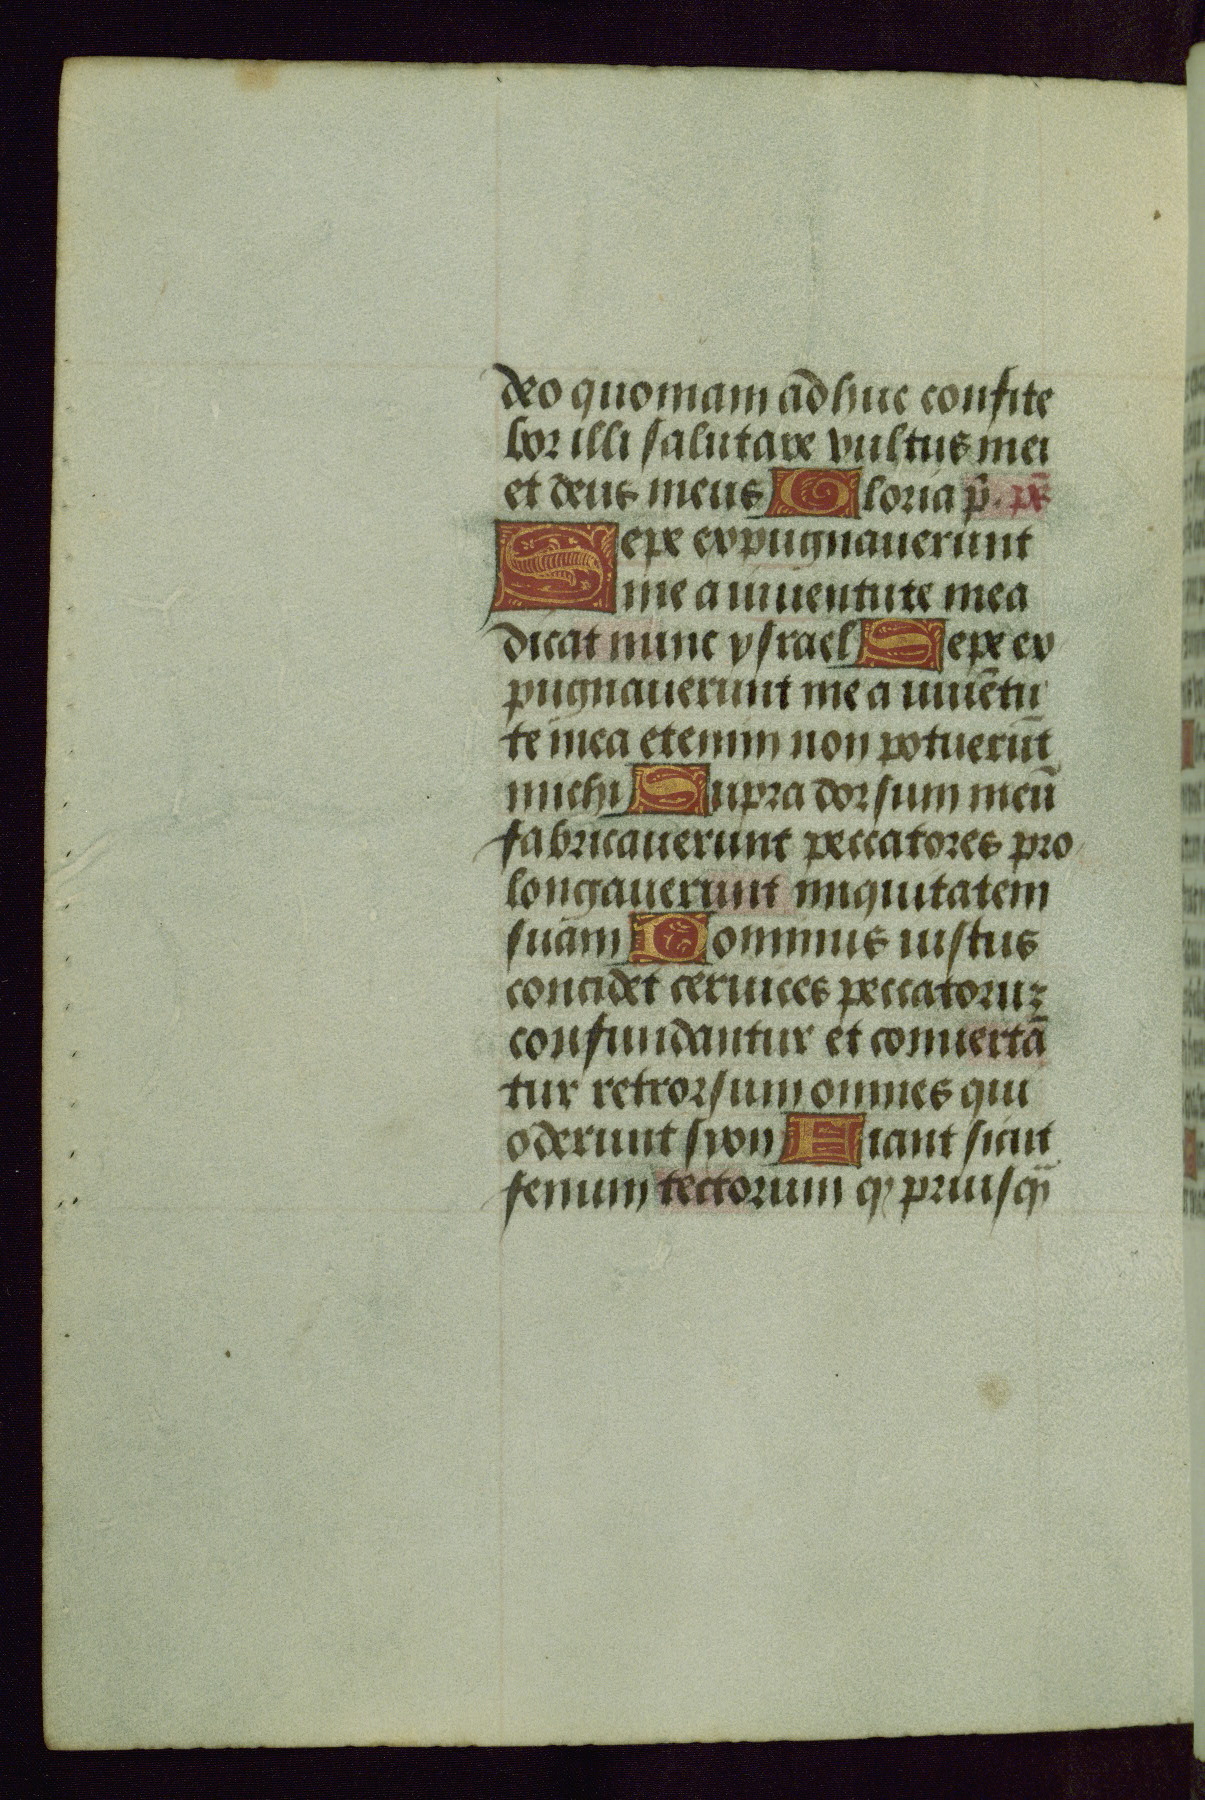 deo quoniam adhuc confite
bor illi salutare vultus mei
et deus meus Gloria p̄. ps̄
Sepe expugnauerunt
me a iuuentute mea
dicat nunc ysrael Sepe ex
pugnauerunt me a iuuētu
te mea etenim non potuerūt
michi Supra dorsum meū
fabricauerunt peccatores pro
longauerunt iniquitatem
suam Dominus iustus
concidet ceruices peccatoruz
confundantur et conuertā
tur retrorsum omnes qui
oderunt syon Fiant sicut
fenum tectorum q̄ priusq̄